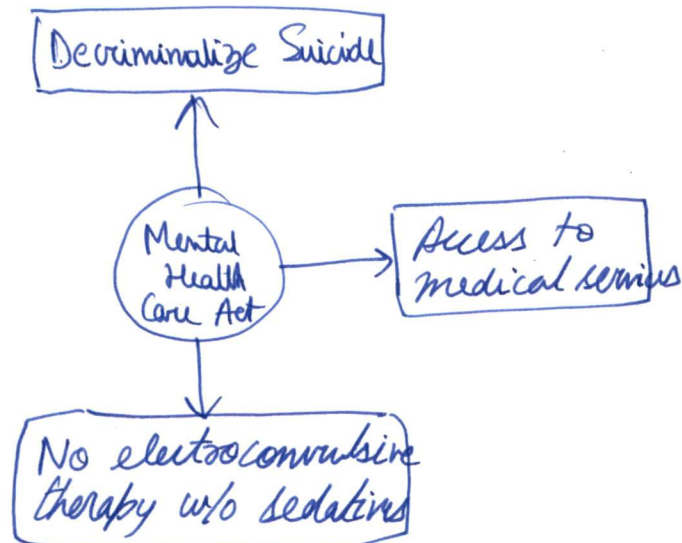 Decriminalize Suicide
Mental
Health
Care Act
Access to
medical services
No electroconvulsive
therapy w/o sedatives